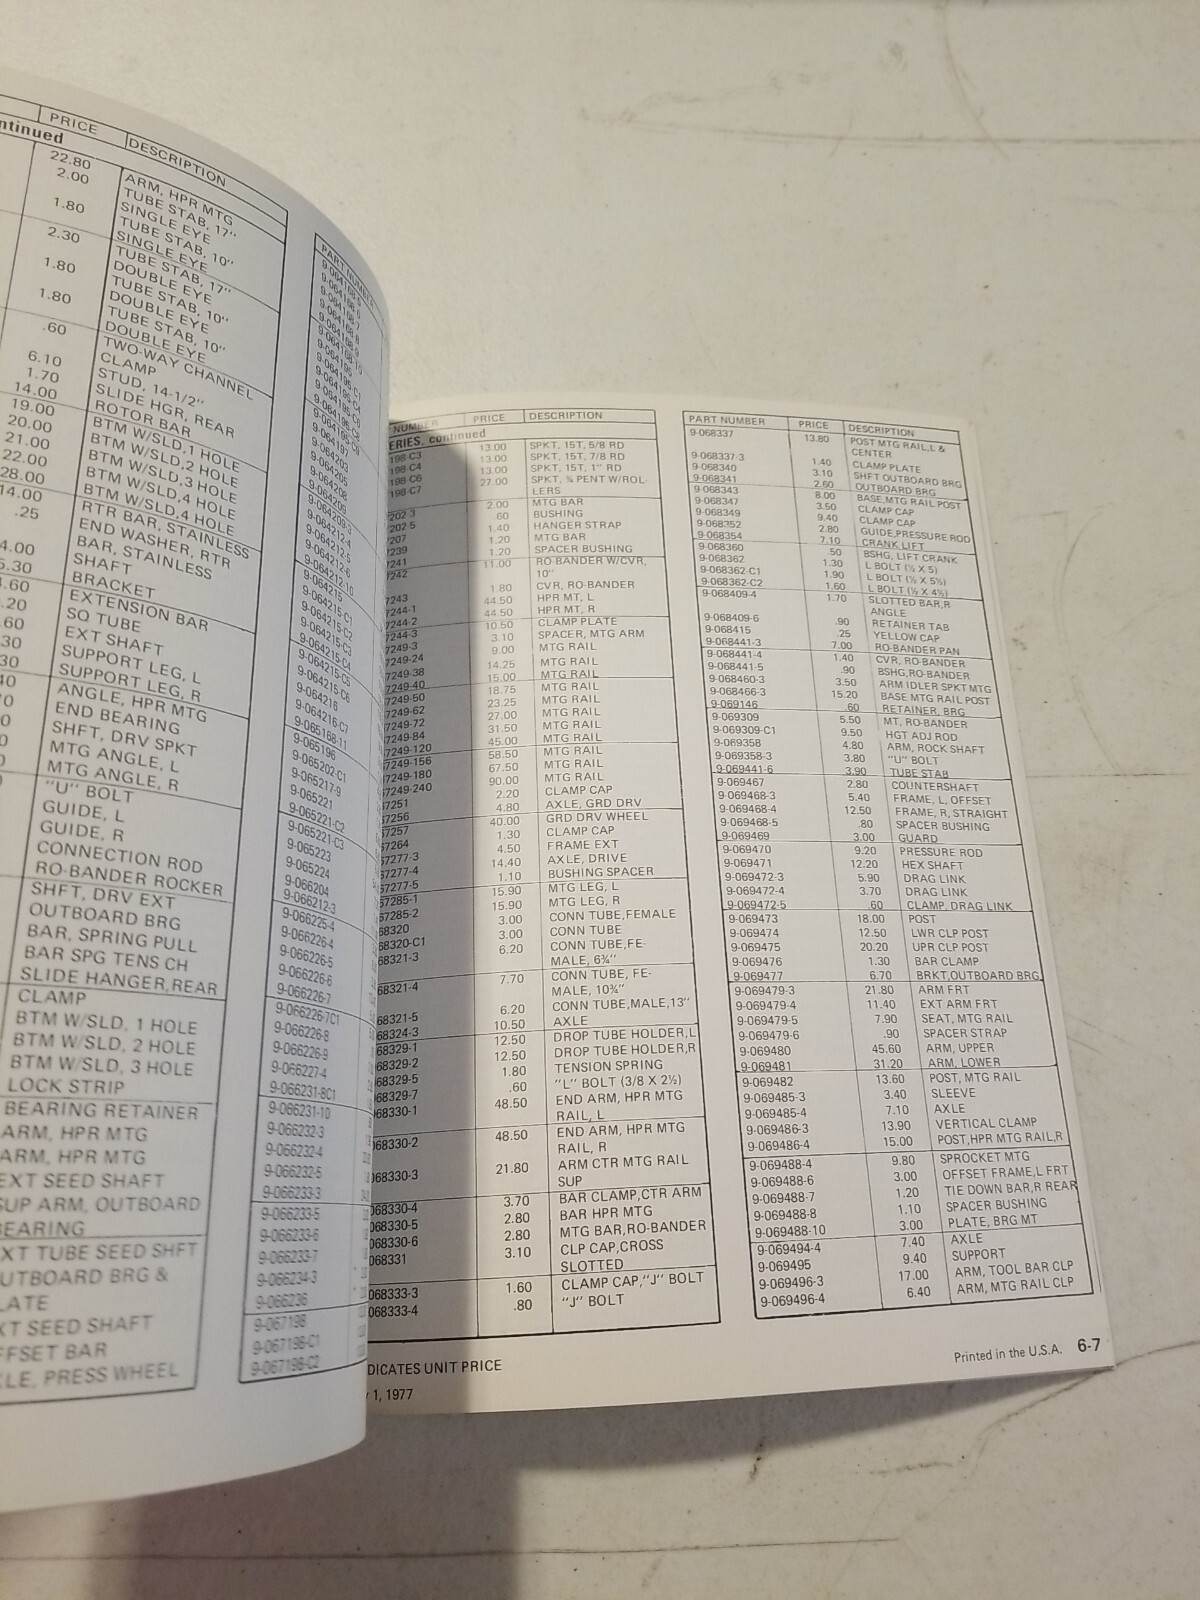 ntinued
PRICE
DESCRIPTION
22.80 ARM, HPR MTG
2.00 TUBE STAB, 17"
SINGLE EYE
1.80 TUBE STAB, 10"
SINGLE EYE
2.30 TUBE STAB, 17"
DOUBLE EYE
1.80 TUBE STAB, 10"
DOUBLE EYE
1.80 TUBE STAB, 10"
DOUBLE EYE
.60 TWO-WAY CHANNEL
CLAMP
6.10 STUD, 14-1/2"
1.70 SLIDE HGR, REAR
14.00 ROTOR BAR
19.00 BTM W/SLD, 1 HOLE
20.00 BTM W/SLD, 2 HOLE
21.00 BTM W/SLD, 3 HOLE
22.00 BTM W/SLD, 4 HOLE
28.00 BTM W/SLD, 4 HOLE
14.00 RTR BAR, STAINLESS
.25 END WASHER, RTR
BAR, STAINLESS
4.00 SHAFT
5.30 BRACKET
.60 EXTENSION BAR
.20 SQ TUBE
.60 EXT SHAFT
.30 SUPPORT LEG, L
.30 SUPPORT LEG, R
ANGLE, HPR MTG
END BEARING
SHFT, DRV SPKT
MTG ANGLE, L
MTG ANGLE, R
"U" BOLT
GUIDE, L
GUIDE, R
CONNECTION ROD
RO-BANDER ROCKER
SHFT, DRV EXT
OUTBOARD BRG
BAR, SPRING PULL
BAR SPG TENS CH
SLIDE HANGER,REAR
CLAMP
BTM W/SLD, 1 HOLE
BTM W/SLD, 2 HOLE
BTM W/SLD, 3 HOLE
LOCK STRIP
BEARING RETAINER
ARM, HPR MTG
ARM, HPR MTG
EXT SEED SHAFT
SUP ARM, OUTBOARD
BEARING
XT TUBE SEED SHFT
UTBOARD BRG &
LATE
XT SEED SHAFT
FFSET BAR
LE, PRESS WHEEL
PART NUMBER
9-064203
9-064205
9-064208
9-064209
9-064209-3
9-064212-4
9-064212-5
9-064212-6
9-064212-10
9-064215
9-064215-C1
9-064215-C2
9-064215-C3
9-064215-C4
9-064215-C5
9-064215-C6
9-064216
9-064216-C7
9-065168-11
9-065196
9-065202-C1
9-065217-9
9-065221
9-065221-C2
9-065221-C3
9-065223
9-065224
9-066204
9-066212-3
9-066225-4
9-066226-4
9-066226-5
9-066226-6
9-066226-7
9-066226-7C1
9-066226-8
9-066226-9
9-066227-4
9-066231-8C1
9-066231-10
9-066232-3
9-066232-4
9-066232-5
9-066233-3
9-066233-5
9-066233-6
9-066233-7
9-066234-3
9-066236
9-067198
9-067198-C1
9-067198-C2
NUMBER PRICE DESCRIPTION
ERIES, continued
198-C3 13.00 SPKT, 15T, 5/8 RD
198-C4 13.00 SPKT, 15T, 7/8 RD
198-C6 13.00 SPKT, 15T, 1" RD
198-C7 27.00 SPKT, ¾ PENT W/ROL-
LERS
2.00 MTG BAR
202-3 60 BUSHING
202-5 1.40 HANGER STRAP
207 1.20 MTG BAR
239 1.20 SPACER BUSHING
241 11.00 RO-BANDER W/CVR,
242 10"
1.80 CVR, RO-BANDER
243 44.50 HPR MT, L
244-1 44.50 HPR MT, R
244-2 10.50 CLAMP PLATE
244-3 3.10 SPACER, MTG ARM
249-3 9.00 MTG RAIL
7249-24 14.25 MTG RAIL
7249-38 15.00 MTG RAIL
7249-40 18.75 MTG RAIL
7249-50 23.25 MTG RAIL
7249-62 27.00 MTG RAIL
7249-72 31.50 MTG RAIL
7249-84 45.00 MTG RAIL
7249-120 58.50 MTG RAIL
7249-156 67.50 MTG RAIL
7249-180 90.00 MTG RAIL
67249-240 2.20 CLAMP CAP
67251 4.80 AXLE, GRD DRV
67256 40.00 GRD DRV WHEEL
67257 1.30 CLAMP CAP
67264 4.50 FRAME EXT
67277-3 14.40 AXLE, DRIVE
67277-4 1.10 BUSHING SPACER
67277-5 15.90 MTG LEG, L
67285-1 15.90 MTG LEG, R
67285-2 3.00 CONN TUBE,FEMALE
68320 3.00 CONN TUBE
68320-C1 6.20 CONN TUBE,FE-
68321-3 MALE, 6¾"
68321-4 7.70 CONN TUBE, FE-
MALE, 10¾"
6.20 CONN TUBE,MALE,13"
68321-5 10.50 AXLE
68324-3 12.50 DROP TUBE HOLDER,L
68329-1 12.50 DROP TUBE HOLDER,R
68329-2 1.80 TENSION SPRING
68329-5 .60 "L" BOLT (3/8 X 2½)
68329-7 48.50 END ARM, HPR MTG
068330-1 RAIL, L
068330-2 48.50 END ARM, HPR MTG
RAIL, R
068330-3 21.80 ARM CTR MTG RAIL
SUP
068330-4 3.70 BAR CLAMP,CTR ARM
068330-5 2.80 BAR HPR MTG
068330-6 2.80 MTG BAR,RO-BANDER
068331 3.10 CLP CAP,CROSS
SLOTTED
068333-3 1.60 CLAMP CAP,"J" BOLT
068333-4 .80 "J" BOLT
PART NUMBER PRICE DESCRIPTION
9-068337 13.80 POST MTG RAIL,L &
CENTER
9-068337-3 1.40 CLAMP PLATE
9-068340 3.10 SHFT OUTBOARD BRG
9-068341 2.60 OUTBOARD BRG
9-068343 8.00 BASE,MTG RAIL POST
9-068347 3.50 CLAMP CAP
9-068349 9.40 CLAMP CAP
9-068352 2.80 GUIDE,PRESSURE ROD
9-068354 7.10 CRANK LIFT
9-068360 .50 BSHG, LIFT CRANK
9-068362 1.30 L BOLT (½ X 5)
9-068362-C1 1.90 L BOLT (½ X 5½)
9-068362-C2 1.60 L BOLT (½ X 4½)
9-068409-4 1.70 SLOTTED BAR,R
ANGLE
9-068409-6 .90 RETAINER TAB
9-068415 .25 YELLOW CAP
9-068441-3 7.00 RO-BANDER PAN
9-068441-4 1.40 CVR, RO-BANDER
9-068441-5 .90 BSHG,RO-BANDER
9-068460-3 3.50 ARM IDLER SPKT MTG
9-068466-3 15.20 BASE MTG RAIL POST
9-069146 .60 RETAINER, BRG
9-069309 5.50 MT, RO-BANDER
9-069309-C1 9.50 HGT ADJ ROD
9-069358 4.80 ARM, ROCK SHAFT
9-069358-3 3.80 "U" BOLT
9-069441-6 3.90 TUBE STAB
9-069467 2.80 COUNTERSHAFT
9-069468-3 5.40 FRAME, L, OFFSET
9-069468-4 12.50 FRAME, R, STRAIGHT
9-069468-5 .80 SPACER BUSHING
9-069469 3.00 GUARD
9-069470 9.20 PRESSURE ROD
9-069471 12.20 HEX SHAFT
9-069472-3 5.90 DRAG LINK
9-069472-4 3.70 DRAG LINK
9-069472-5 .60 CLAMP, DRAG LINK
9-069473 18.00 POST
9-069474 12.50 LWR CLP POST
9-069475 20.20 UPR CLP POST
9-069476 1.30 BAR CLAMP
9-069477 6.70 BRKT,OUTBOARD BRG
9-069479-3 21.80 ARM FRT
9-069479-4 11.40 EXT ARM FRT
9-069479-5 7.90 SEAT, MTG RAIL
9-069479-6 .90 SPACER STRAP
9-069480 45.60 ARM, UPPER
9-069481 31.20 ARM, LOWER
9-069482 13.60 POST, MTG RAIL
9-069485-3 3.40 SLEEVE
9-069485-4 7.10 AXLE
9-069486-3 13.90 VERTICAL CLAMP
9-069486-4 15.00 POST,HPR MTG RAIL,R
9-069488-4 9.80 SPROCKET MTG
9-069488-6 3.00 OFFSET FRAME,L FRT
9-069488-7 1.20 TIE DOWN BAR,R REAR
9-069488-8 1.10 SPACER BUSHING
9-069488-10 3.00 PLATE, BRG MT
9-069494-4 7.40 AXLE
9-069495 9.40 SUPPORT
9-069496-3 17.00 ARM, TOOL BAR CLP
9-069496-4 6.40 ARM, MTG RAIL CLP
DICATES UNIT PRICE
y 1, 1977
Printed in the U.S.A. 6-7